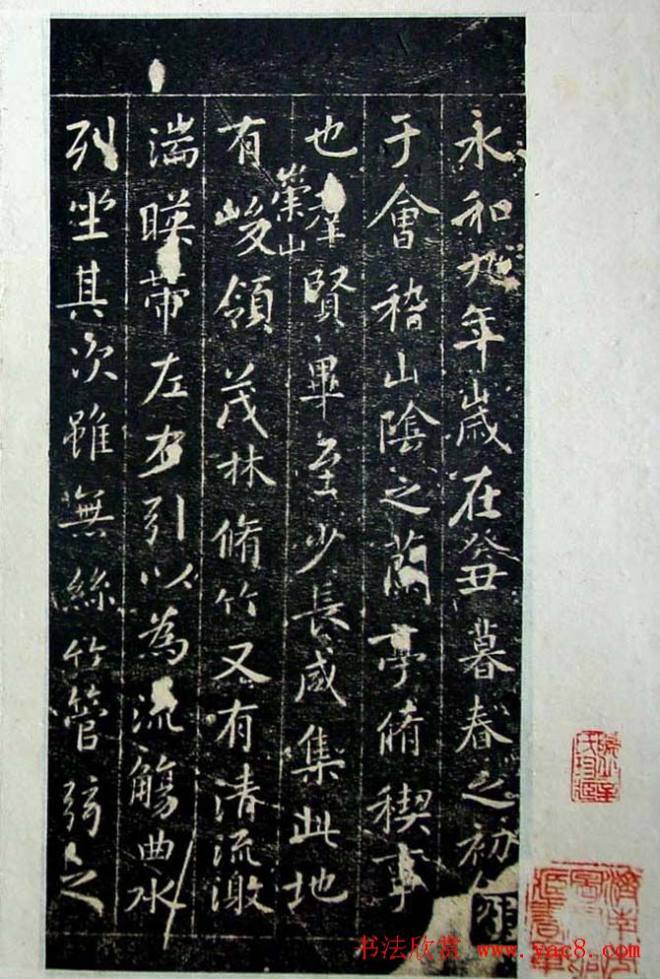 永和九年歲在癸丑暮春之初
于會稽山陰之蘭亭脩稧事
也群賢畢至少長咸集此地
有崇山峻領茂林脩竹又有清流激
湍暎帶左右引以為流觴曲水
列坐其次雖無絲竹管弦之
书法欣赏 www.yac8.com